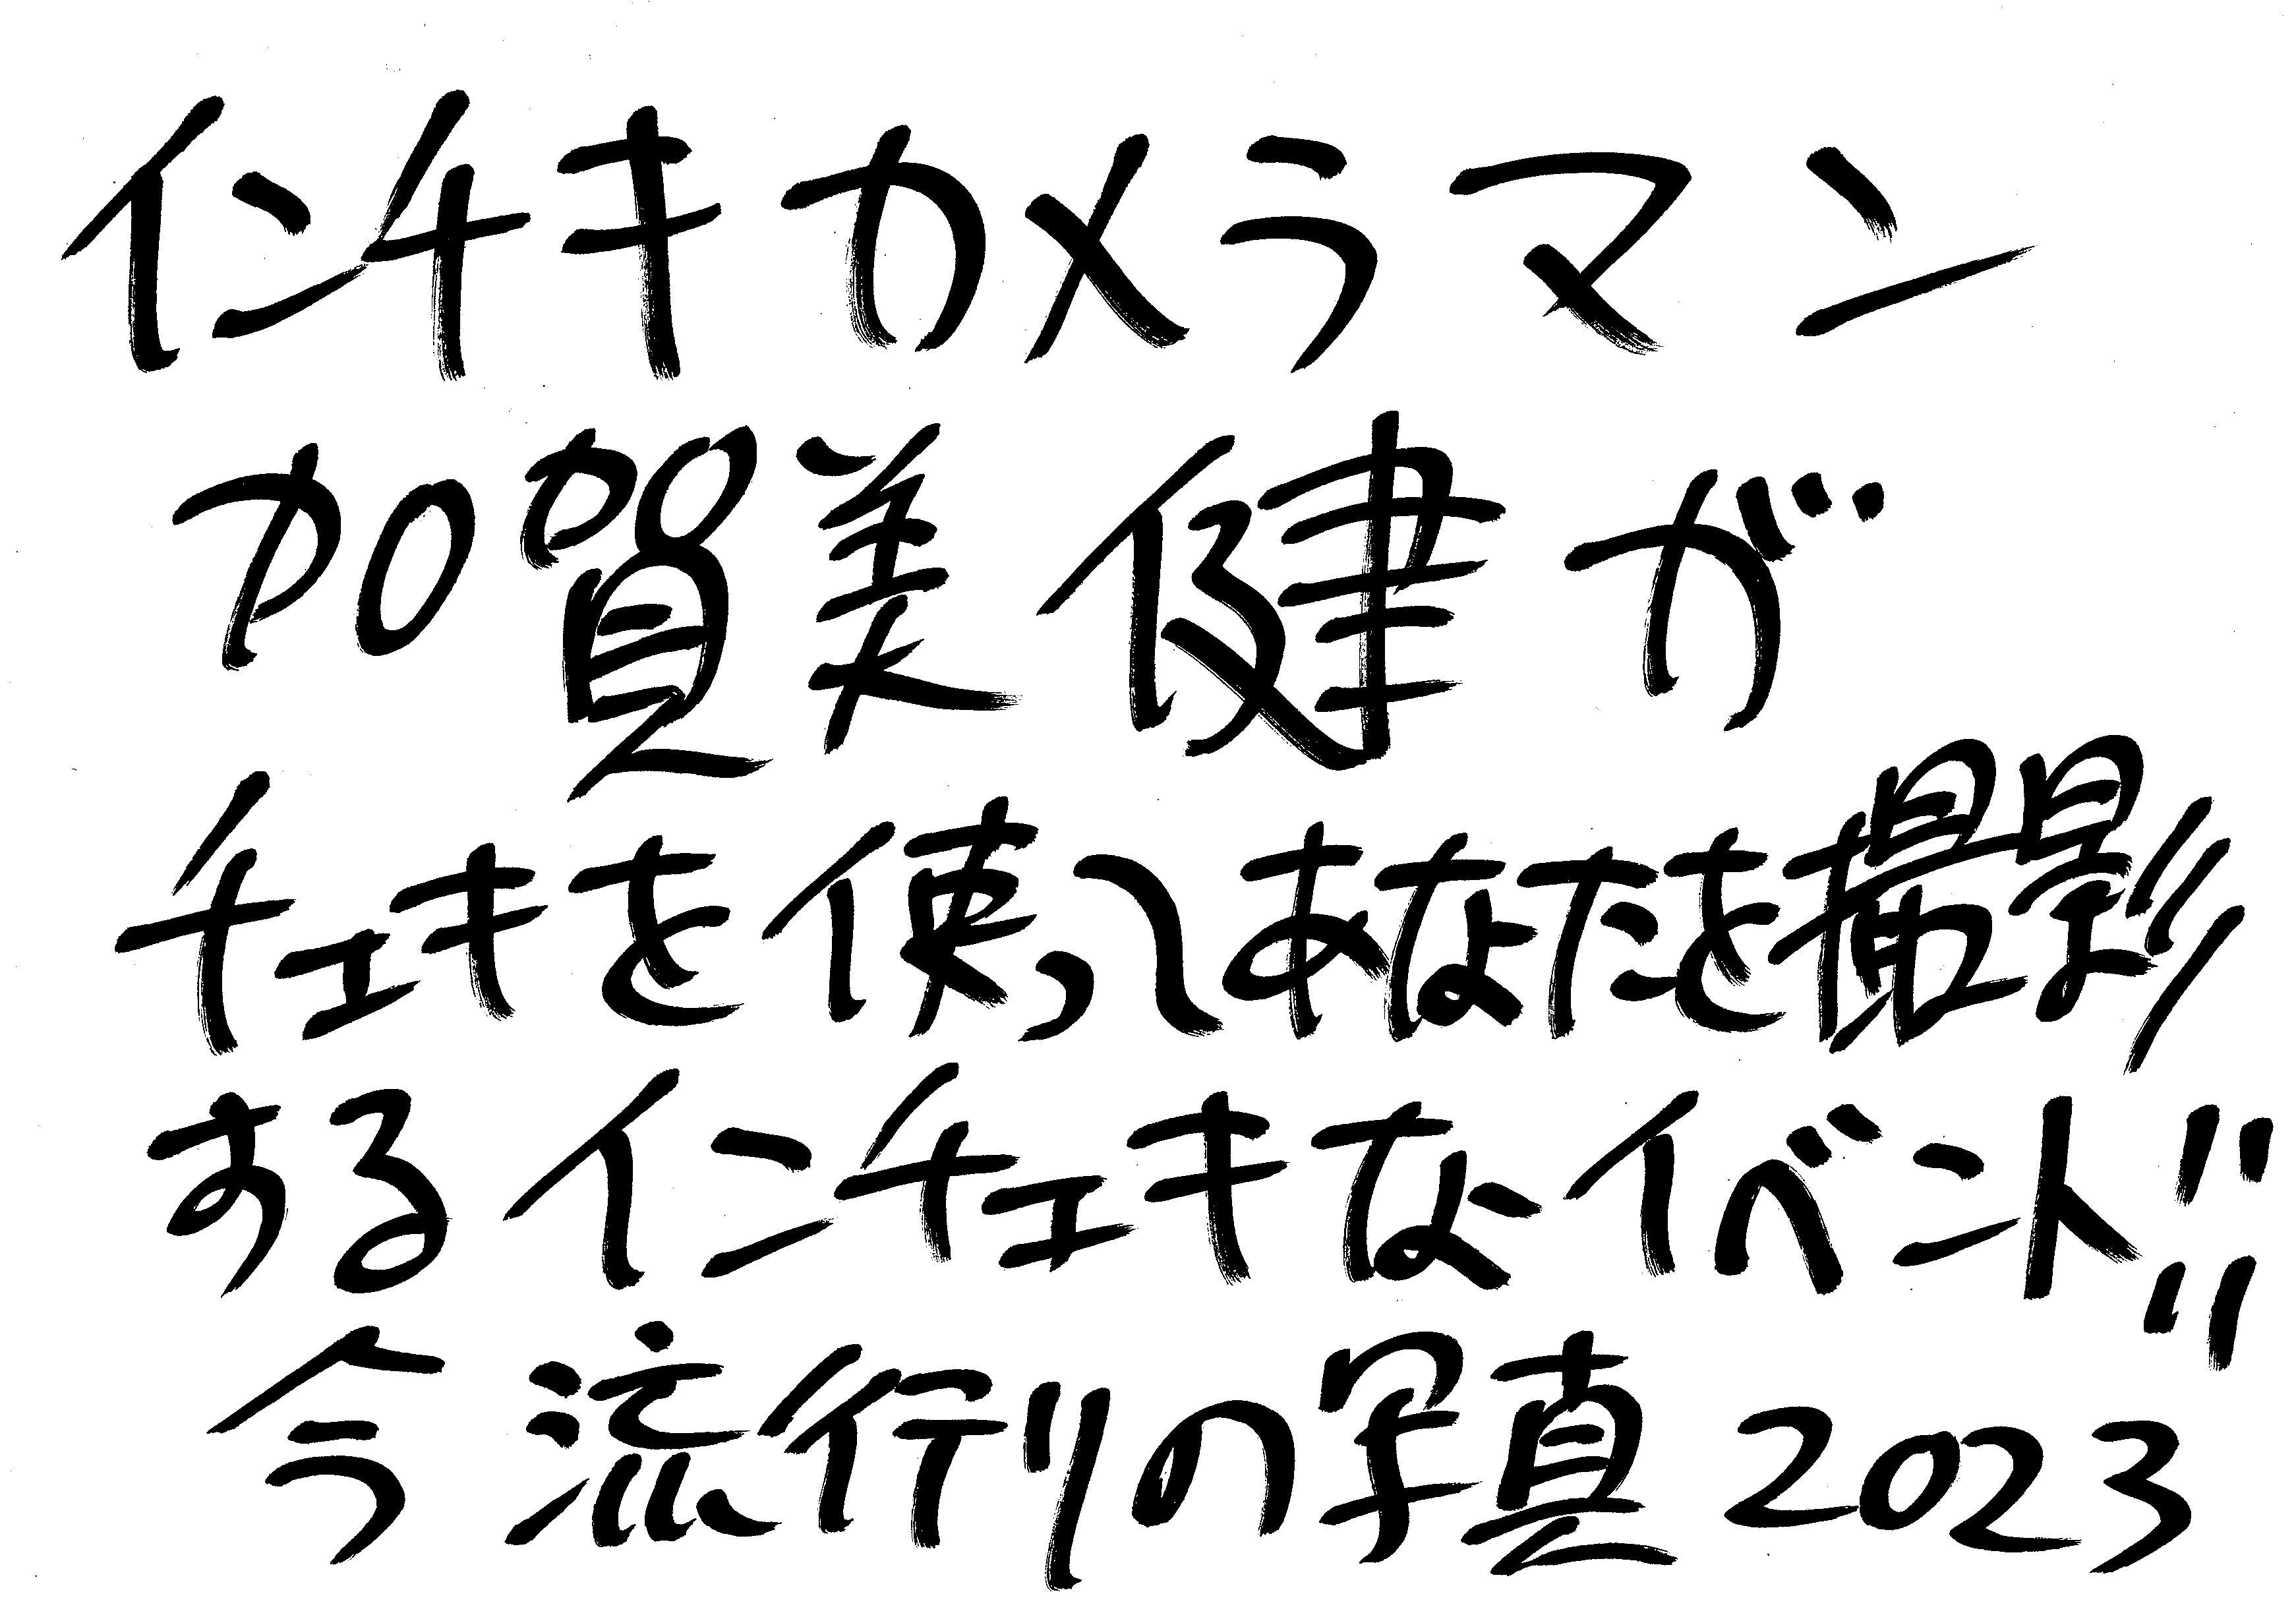 インチキカメラマン
加賀美健が
チェキを使ってあなたを撮影
するインチェキなイベント!!
今流行りの写真2023